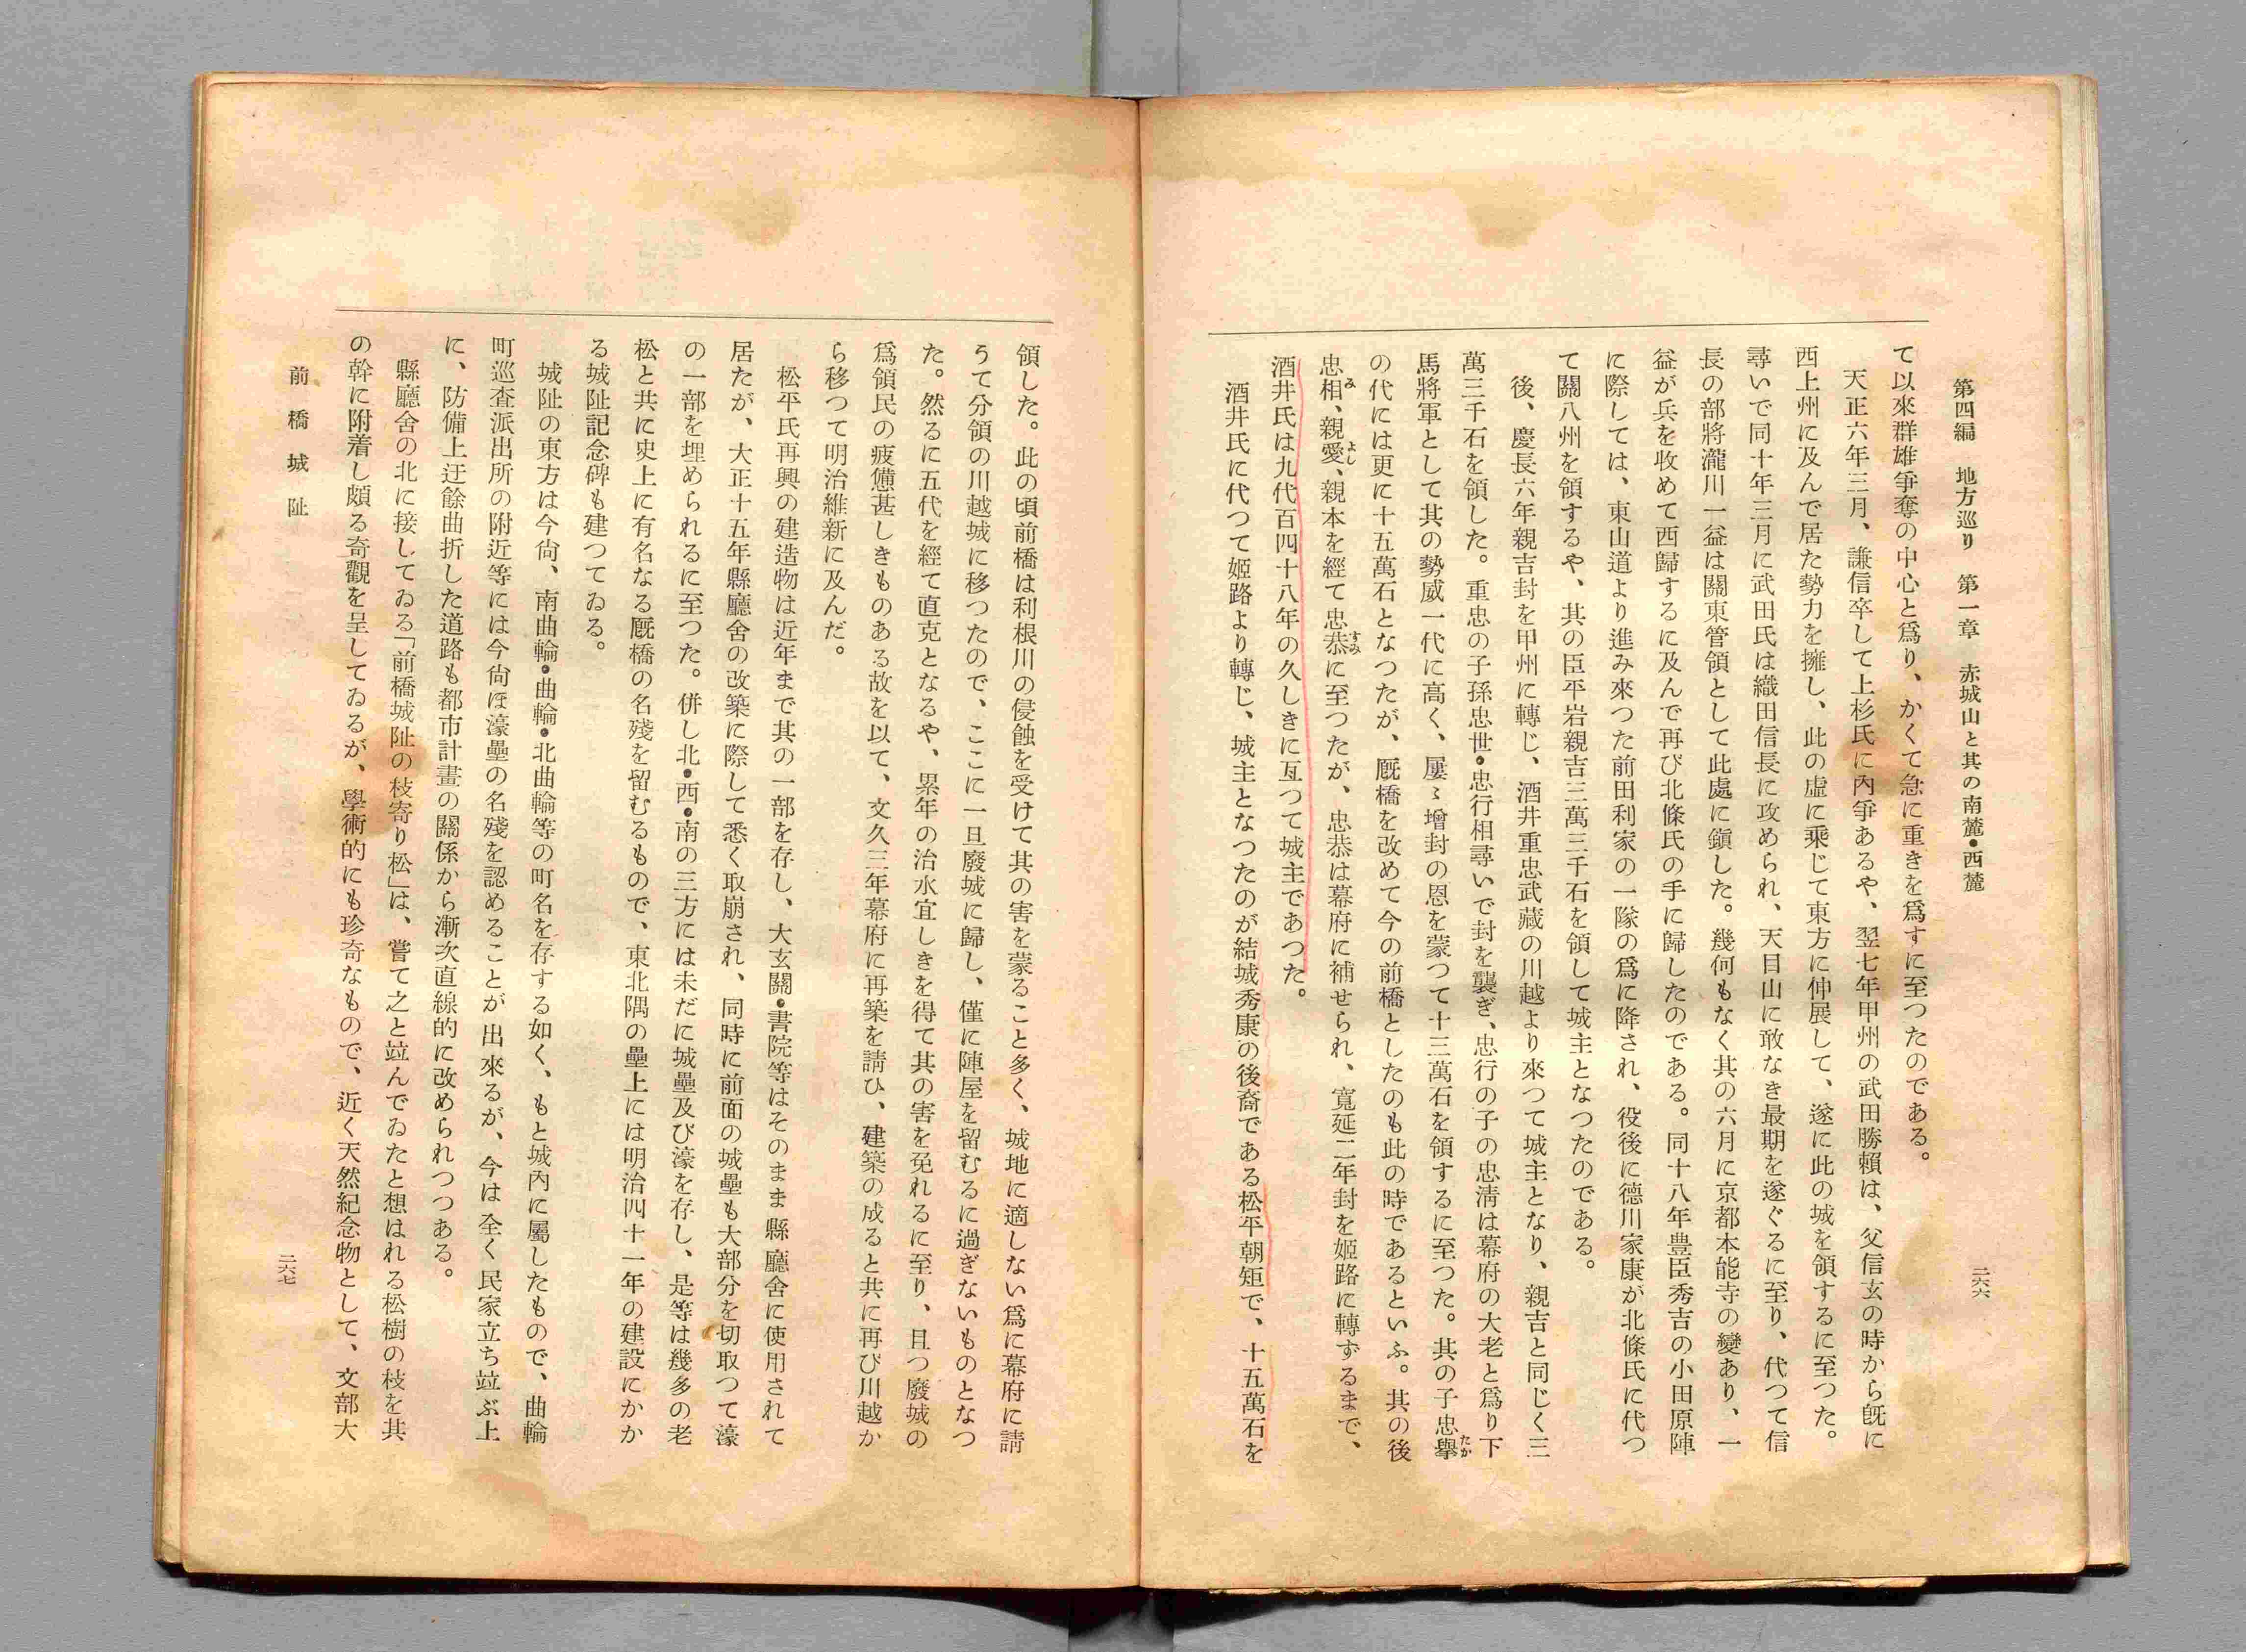 第四編　地方巡り　第一章　赤城山と其の南麓・西麓
二六六
て以來群雄爭奪の中心と爲り、かくて急に重きを爲すに至つたのである。
天正六年三月、謙信卒して上杉氏に內爭あるや、翌七年甲州の武田勝賴は、父信玄の時から旣に
西上州に及んで居た勢力を擁し、此の虛に乘じて東方に伸展して、遂に此の城を領するに至つた。
尋いで同十年三月に武田氏は織田信長に攻められ、天目山に敢なき最期を遂ぐるに至り、代つて信
長の部將瀧川一益は關東管領として此處に鎭した。幾何もなく其の六月に京都本能寺の變あり、一
益が兵を收めて西歸するに及んで再び北條氏の手に歸したのである。同十八年豊臣秀吉の小田原陣
に際しては、東山道より進み來つた前田利家の一隊の爲に降され、役後に德川家康が北條氏に代つ
て關八州を領するや、其の臣平岩親吉三萬三千石を領して城主となつたのである。
後、慶長六年親吉封を甲州に轉じ、酒井重忠武藏の川越より來つて城主となり、親吉と同じく三
萬三千石を領した。重忠の子孫忠世・忠行相尋いで封を襲ぎ、忠行の子の忠淸は幕府の大老と爲り下
馬將軍として其の勢威一代に高く、屢〻增封の恩を蒙つて十三萬石を領するに至つた。其の子忠擧たか
の代には更に十五萬石となつたが、厩橋を改めて今の前橋としたのも此の時であるといふ。其の後
忠相み、親愛よし、親本を經て忠恭すみに至つたが、忠恭は幕府に補せられ、寬延二年封を姬路に轉ずるまで、
酒井氏は九代百四十八年の久しきに亙つて城主であつた。
酒井氏に代つて姬路より轉じ、城主となつたのが結城秀康の後裔である松平朝矩で、十五萬石を
領した。此の頃前橋は利根川の侵蝕を受けて其の害を蒙ること多く、城地に適しない爲に幕府に請
うて分領の川越城に移つたので、ここに一旦廢城に歸し、僅に陣屋を留むるに過ぎないものとなつ
た。然るに五代を經て直克となるや、累年の治水宜しきを得て其の害を免れるに至り、且つ廢城の
爲領民の疲憊甚しきものある故を以て、文久三年幕府に再築を請ひ、建築の成ると共に再び川越か
ら移つて明治維新に及んだ。
松平氏再興の建造物は近年まで其の一部を存し、大玄關・書院等はそのまま縣廳舍に使用されて
居たが、大正十五年縣廳舍の改築に際して悉く取崩され、同時に前面の城壘も大部分を切取つて濠
の一部を埋められるに至つた。併し北・西・南の三方には未だに城壘及び濠を存し、是等は幾多の老
松と共に史上に有名なる厩橋の名殘を留むるもので、東北隅の壘上には明治四十一年の建設にかか
る城阯記念碑も建つてゐる。
城阯の東方は今尙、南曲輪・曲輪・北曲輪等の町名を存する如く、もと城內に屬したもので、曲輪
町巡査派出所の附近等には今尙ほ濠壘の名殘を認めることが出來るが、今は全く民家立ち竝ぶ上
に、防備上迂餘曲折した道路も都市計畫の關係から漸次直線的に改められつつある。
縣廳舍の北に接してゐる「前橋城阯の枝寄り松」は、嘗て之と竝んでゐたと想はれる松樹の枝を其
の幹に附着し頗る奇觀を呈してゐるが、學術的にも珍奇なもので、近く天然紀念物として、文部大
前橋城阯
二六七